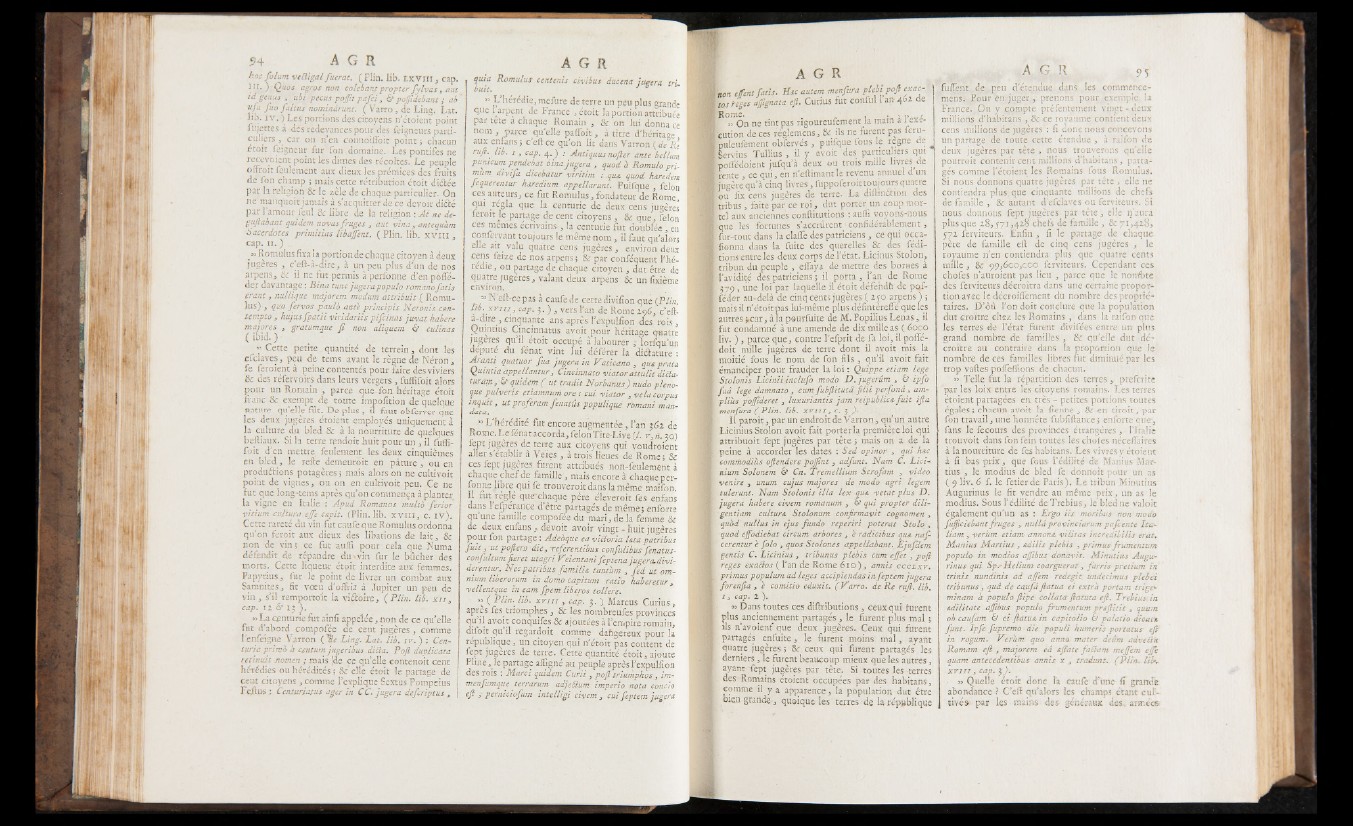 94 A G R
hoc solum vectigal fuerat. ( Plin. lib. LXVIII, cap.
III. ) Quos agros non colebant propter sylvas, aut
id genus, ubi pecus possit pasci, & possidebant ; ab
usu suo saltus nominârunt. ( Varro, de Ling. Lat.
lib. IV. ) Les portions des citoyens n'étoient point
sujettes à des redevances pour des seigneurs parti-
culiers, car on n'en connoissoit point ; chacun
étoit seigneur sur son domaine. Les pontifes ne
recevoient point les dîmes des récoltes. Le peuple
offroit seulement aux dieux les prémices des fruits
de son champ ; mais cette rétribution étoit dictée
par la religion & le zèle de chaque particulier. On
ne manquoit jamais à s'acquitter de ce devoir dicté
par l'amour seul & libre de la religion : At ne de-
gustabant quidem novas fruges, aut vina, antequàm
Sacerdotes primitias libassent. ( Plin. lib. XVIII,
cap. II. )
» Romulus fixa la portion de chaque citoyen à deux
jugères, c'est-à-dire, à un peu plus d'un de nos
arpens, & il ne fut permis à personne d'en possé-
der davantage : Bina tunc jugera populo romano satis
erant, nullique majorem modum attribuit ( Romu-
lus ), quo servos paulo antè principis Neronis con-
tempto, hujus spatii viridariis piscinas juvat habere
majores, gratumque si non aliquem & culinas
( ibid. )
» Cette petite quantité de terrein, dont les
esclaves, peu de tems avant le règne de Néron,
se seroient à peine contentés pour faire des viviers
& des réservoirs dans leurs vergers, suffisoit alors
pour un Romain, parce que son héritage étoit
franc & exempt de toute imposition de quelque
nature qu'elle fût. De plus, il faut observer que
les deux jugères étoient employés uniquement à
la culture du bled & à la nourriture de quelques
bestiaux. Si la terre rendoit huit pour un, il suffi-
soit d'en mettre seulement les deux cinquièmes
en bled, le reste demeuroit en pâture, ou en
productions potagères ; mais alors on ne cultivoit
point de vignes, ou on en cultivoit peu. Ce ne
fut que long-tems après qu'on commença à planter
la vigne en Italie : Apud Romanos multò serior
vitium cultura esse cœpit. ( Plin. lib. XVIII, c. IV).
Cette rareté du vin fut cause que Romulus ordonna
qu'on feroit aux dieux des libations de lait, &
non de vin ; ce fut aussi pour cela que Numa
défendit de répandre du vin sur le bûcher des
morts. Cette liqueur étoit interdite aux femmes.
Papyrius, sur le point de livrer un combat aux
Samnites, fit vœu d'offrir à Jupiter un peu de
vin, s'il remportoit la victoire, ( Plin. lib. XIV,
cap. 12 & 13 ).
» La centurie fut ainsi appelée, non de ce qu'elle
fut d'abord composée de cent jugères, comme
l'enseigne Varron ( De Ling. Lat. lib. IV. ) : Cen-
turia primò à centum jugeribus dicta. Post duplicata
retinuit nomen ; mais de ce qu'elle contenoit cent
hérédies ou hérédités ; & elle étoit le partage de
cent citoyens, comme l'explique Sextus Pompeïus
Festus : Centuriatus ager in CC. jugera descriptus,
A G R
quia Romulus centenis civibus ducena jugera tri-
buit.
» L'hérédie, mesure de terre un peu plus grande
que l'arpent de France, étoit la portion attribuée
par tête à chaque Romain, & on lui donna ce
nom, parce qu'elle passoit, à titre d'héritage,
aux enfans ; c'est ce qu'on lit dans Varron ( de Re
rust. lib. 1, cap. 4. ) : Antiquus noster ante bellum
punitum pendebat bina jugera, quod à Romulo pri-
mùm divisa dicebatur viritim : quæ quod hæredem
sequerentur hæredium appellarunt. Puisque, selon
ces auteurs, ce fut Romulus, fondateur de Rome,
qui régla que la centurie de deux cens jugères
seroit le partage de cent citoyens, & que, selon
ces mêmes écrivains, la centurie fut doublée, en
conservant toujours le même nom, il faut qu'alors
elle ait valu quatre cens jugères, environ deux
cens seize de nos arpens ; & par conséquent l'hé-
rédie, ou partage de chaque citoyen, dut être de
quatre jugères, valant deux arpens & un sixième
environ.
» N'est-ce pas à cause de cette division que ( Plin.
lib. XVIII, cap. 3. ), vers l'an de Rome 296, c'est-
à-dire, cinquante ans après l'expulsion des rois,
Quintius Cincinnatus avoit pour héritage quatre
jugères qu'il étoit occupé à labourer ; lorsqu'un
député du sénat vint lui déférer la dictature :
Aranti quatuor sua jugera in Vaticano, quæ prata
Quintia appellantur, Cincinnato viator attulit dicta-
turam, & quidem ( ut tradit Norbanus ) nudo pleno-
que pulveris etiamnum ore : cui viator, vela corpus
inquit, ut proferam senatûs populique romani man-
data.
» L'hérédité fut encore augmentée, l'an 362 de
Rome. Le sénat accorda, selon Tite-Live ( l. V, n. 30)
sept jugères de terre aux citoyens qui voudroient
aller s'établir à Veïes, à trois lieues de Rome ; &
ces sept jugères furent attribués non-seulement à
chaque chef de famille, mais encore à chaque per-
sonne libre qui se trouveroit dans la même maison.
Il fut réglé que chaque père éleveroit ses enfans
dans l'espérance d'être partagés de même ; ensorte
qu'une famille composée du mari, de la femme &
de deux enfans, devoit avoir vingt-huit jugères
pour son partage : Adeòque ea victoria læta patribus
fuit, ut postero die, referentibus consulibus senatus-
consultum fieret ut agri Veïentani septena jugera divi-
derentur. Nec patribus familiæ tantùm, sed ut om-
nium liberorum in domo capitum ratio haberetur,
vellentque in eam spem liberos tollere.
» ( Plin. lib. XVIII, cap. 3. ) Marcus Curius,
après ses triomphes, & les nombreuses provinces
qu'il avoit conquises & ajoutées à l'empire romain,
disoit qu'il regardoit comme dangereux pour la
république, un citoyen qui n'étoit pas content de
sept jugères de terre. Cette quantité étoit, ajoute
Pline, le partage assigné au peuple après l'expulsion
des rois : Marci quidem Curii, post triumphos, im-
mensumque terrarum adjectum imperio nota concio
est ; perniciosum intelligi civem, cui septem jugera
A G R
non essent satis. Hæc autem mensura plebi post exac-
tos reges assignata est. Curius fut consul l'an 462 de
Rome.
» On ne tint pas rigoureusement la main à l'exé-
cution de ces réglemens, & ils ne furent pas scru-
puleusement observés, puisque sous le règne de
Servius Tullius, il y avoit des particuliers qui
possédoient jusqu'à deux ou trois mille livres de
rente, ce qui, en n'estimant le revenu annuel d'un
jugère qu'à cinq livres, supposeroit toujours quatre
ou six cens jugères de terre. La distinction des
tribus, faite par ce roi, dut porter un coup mor-
tel aux anciennes constitutions : aussi voyons-nous
que les fortunes s'accrûrent considérablement,
sur-tout dans la classe des patriciens, ce qui occa-
sionna dans la suite des querelles & des sédi-
tions entre les deux corps de l'état. Licinus Stolon,
tribun du peuple, essaya de mettre des bornes à
l'avidité des patriciens ; il porta, l'an de Rome
379, une loi par laquelle il étoit défendu de pos-
séder au-delà de cinq cents jugères ( 250 arpens ) ;
mais il n'étoit pas lui-même plus désintéressé que les
autres ; car, à la poursuite de M. Popilius Lenas, il
fut condamné à une amende de dix mille as ( 6000
liv. ), parce que, contre l'esprit de sa loi, il possé-
doit mille jugères de terre dont il avoit mis la
moitié sous le nom de son fils, qu'il avoit fait
émanciper pour frauder la loi : Quippe etiam lege
Stolonis Licinii incluso modo D. jugerûm, & ipso
suâ lege damnato, cum substitutâ filii personâ, am-
plius possideret, luxuriantis jam reipublicæ fuit ista
mensura ( Plin. lib. XVIII, c. 3.)
Il paroît, par un endroit de Varron, qu'un autre
Licinius Stolon avoit fait porter la première loi qui
attribuoit sept jugères par tête ; mais on a de la
peine à accorder les dates : Sed opinor, qui hæc
commodiùs ostendere possint, adsunt. Nam C. Lici-
nium Stolonem & Cn. Tremellium Scrofam, video
venire, unum cujus majores de modo agri legem
tulerunt. Nam Stolonis illa lex quæ vetat plus D.
jugera habere civem romanum, & qui propter dili-
gentiam culturæ Stolonum confirmavit cognomen,
quòd nullus in ejus fundo reperiri poterat Stolo,
quod effodiebat circum arbores, è radicibus quæ nas-
cerentur è solo, quos Stolones appellabant. Ejusdem
gentis C. Licinius, tribunus plebis cum esset, post
reges exactos ( l'an de Rome 610 ), annis CCCLXV.
primus populum ad leges accipiendas in septem jugera
forensia, è comitio eduxit. ( Varro. de Re rust. lib.
1, cap. 2 ).
» Dans toutes ces distributions, ceux qui furent
plus anciennement partagés, le furent plus mal ;
ils n'avoient que deux jugères. Ceux qui furent
partagés ensuite, le furent moins mal, ayant
quatre jugères ; & ceux qui furent partagés les
derniers, le furent beaucoup mieux que les autres,
ayant sept jugères par tête. Si toutes les terres
des Romains étoient occupées par des habitans,
comme il y a apparence, la population dut être
bien grande, quoique les terres de la république
A G R 95
fussent de peu d'étendue dans les commence-
mens. Pour en juger, prenons pour exemple la
France. On y compte présentement vingt-deux
millions d'habitans, & ce royaume contient deux
cens millions de jugères : si donc nous concevons
un partage de toute cette étendue, à raison de
deux jugères par tête, nous trouverons qu'elle
pourroit contenir cent millions d'habitans, parta-
gés comme l'étoient les Romains sous Romulus.
Si nous donnons quatre jugères par tête, elle ne
contiendra plus que cinquante millions de chefs
de famille, & autant d'esclaves ou serviteurs. Si
nous donnons sept jugères par tête, elle n'aura
plus que 28,571,428 chefs de famille, & 71,428,
572 serviteurs. Enfin, si le partage de chaque
père de famille est de cinq cens jugères, le
royaume n'en contiendra plus que quatre cents
mille, & 99,600,000 serviteurs. Cependant ces
choses n'auroient pas lieu, parce que le nombre
des serviteurs décroîtra dans une certaine propor-
tion avec le décroissement du nombre des proprié-
taires. D'où l'on doit conclure que la population
dut croître chez les Romains, dans la raison que
les terres de l'état furent divisées entre un plus
grand nombre de familles, & qu'elle dut dé-
croître au contraire dans la proportion que le
nombre de ces familles libres fut diminué par les
trop vastes possessions de chacun.
» Telle fut la répartition des terres, prescrite
par les loix entre les citoyens romains. Les terres
étoient partagées en très-petites portions toutes
égales ; chacun avoit la sienne, & en tiroit, par
son travail, une honnête subsistance ; ensorte que,
sans le secours des provinces étrangères, l'Italie
trouvoit dans son sein toutes les choses nécessaires
à la nourriture de ses habitans. Les vivres y étoient
à si bas prix, que sous l'édilité de Manius Mar-
tius, le modius de bled se donnoit pour un as
( 9 liv. 6 s. le setier de Paris ). Le tribun Minutius
Augurinus le fit vendre au même prix, un as le
modius. Sous l'édilité de Trebius, le bled ne valoit
également qu'un as : Ergo iis moribus non modo
sufficiebant fruges, nullâ provinciarum pascente Ita-
liam, verùm etiam annonæ vilitas incredibilis erat.
Manius Martius, ædilis plebis, primus frumentum
populo in modios assibus donavit. Minutius Augu-
rinus qui Sp. Melium coarguerat, farris pretium in
trinis nundinis ad assem redegit undecimus plebei
tribunus, quâ de causâ statua ei extrà portam trige-
minam à populo stipe collata statuta est. Trebius in
ædilitate assibus populo frumentum præstitit, quam
ob causam & ei statuæ in capitolio & palatio dicatæ
sunt. Ipse supremo die populi humeris portatus est
in rogum. Verùm quo anno mater deûm advecta
Romam est, majorem ea æstate factam messem esse
quam antecedentibus annis x, tradunt. ( Plin. lib.
XVIII, cap. 3.).
» Quelle étoit donc la cause d'une si grande
abondance ? C'est qu'alors les champs étant cul-
tivés par les mains des généraux des armées